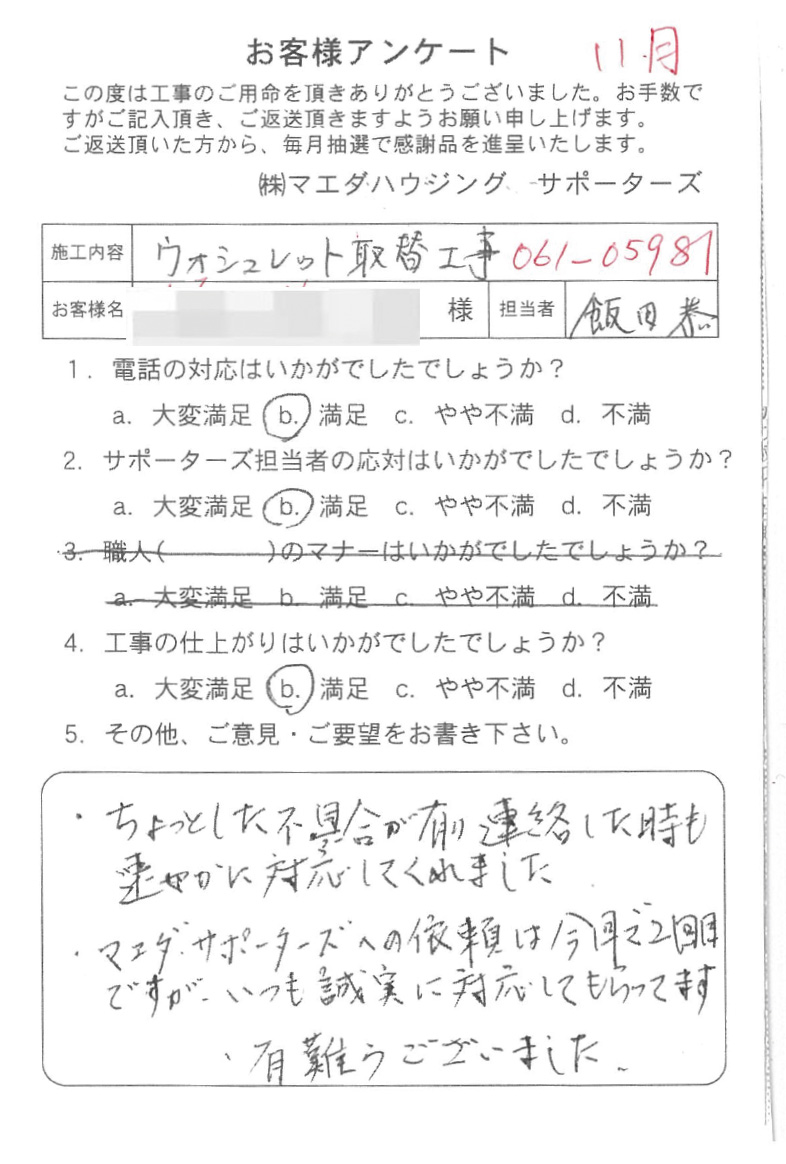 お客様アンケート 11月
この度は工事のご用命を頂きありがとうございました。お手数で
すがご記入頂き、ご返送頂きますようお願い申し上げます。
ご返送頂いた方から、毎月抽選で感謝品を進呈いたします。
㈱マエダハウジング サポーターズ
施工内容 ウォシュレット取替工事 061-05981
お客様名 様 担当者 飯田恭
1. 電話の対応はいかがでしたでしょうか?
a. 大変満足 b. 満足 c. やや不満 d. 不満
2. サポーターズ担当者の応対はいかがでしたでしょうか?
a. 大変満足 b. 満足 c. やや不満 d. 不満
3. 職人( )のマナーはいかがでしたでしょうか?
a. 大変満足 b. 満足 c. やや不満 d. 不満
4. 工事の仕上がりはいかがでしたでしょうか?
a. 大変満足 b. 満足 c. やや不満 d. 不満
5. その他、ご意見・ご要望をお書き下さい。
・ちょっとした不具合が有り連絡した時も
速やかに対応してくれました
・マエダ・サポーターズへの依頼は今回で2回目
ですが、いつも誠実に対応してもらってます
、有難うございました。